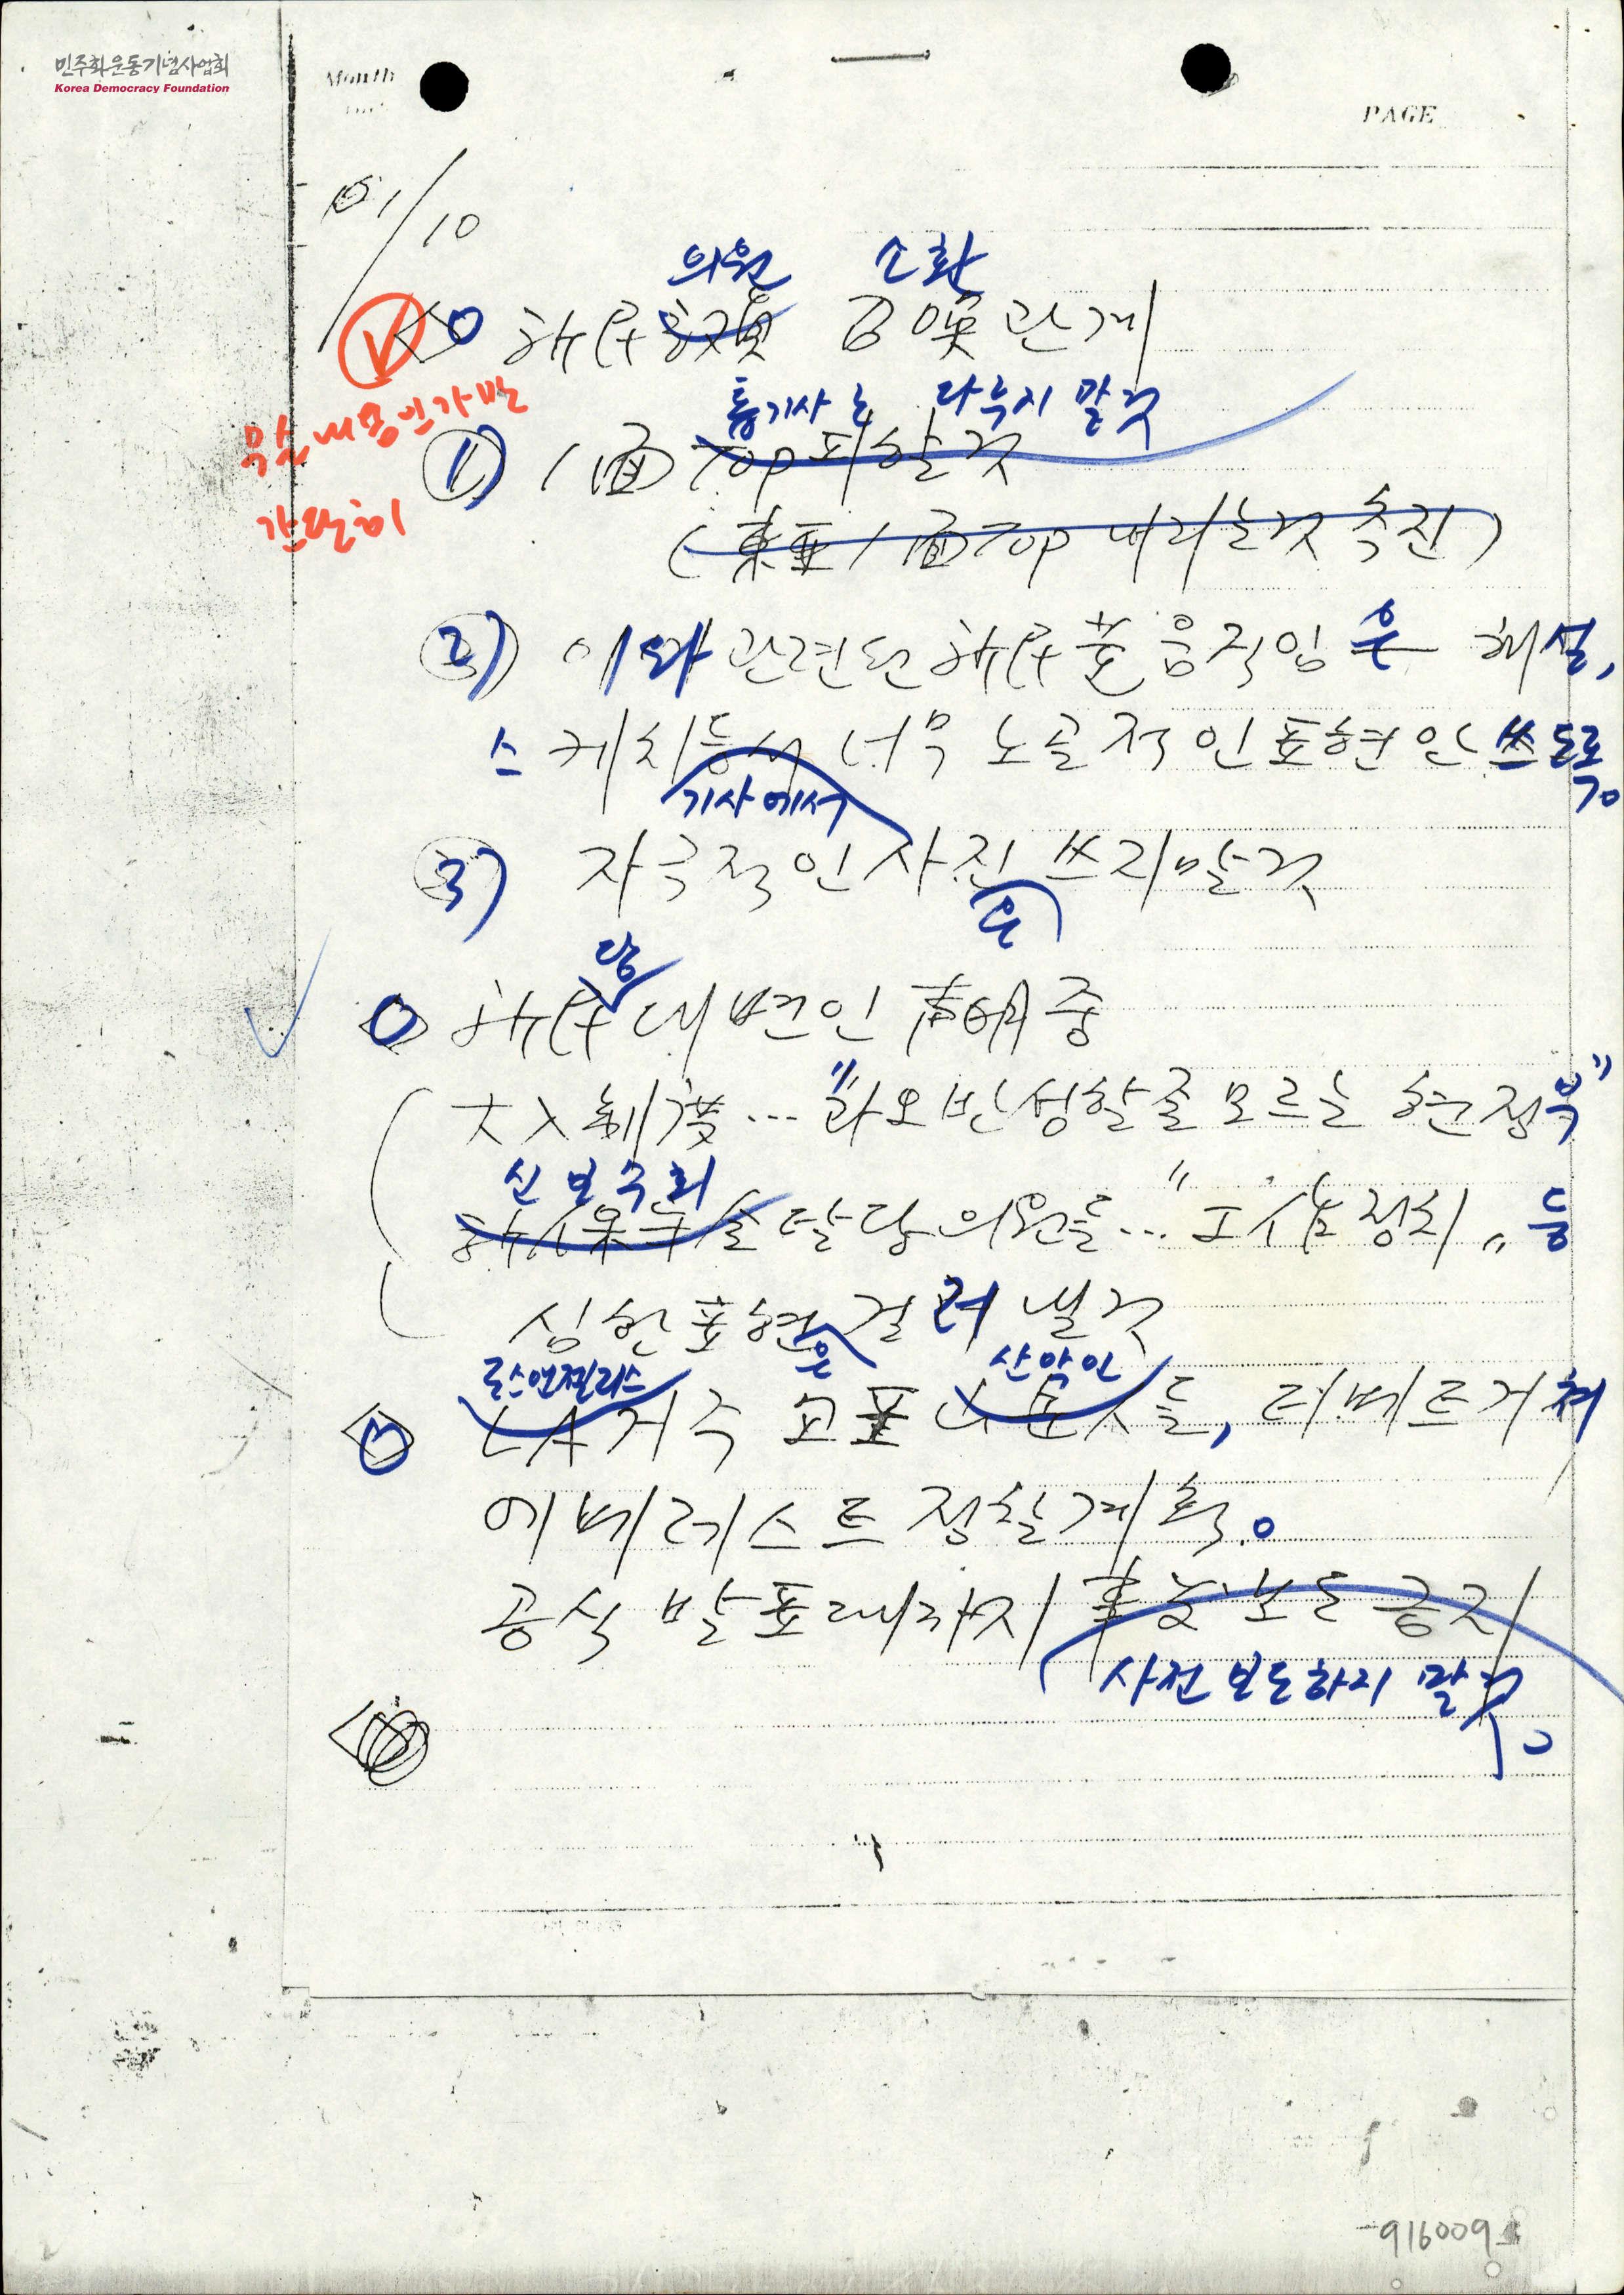 민주화운동기념사업회
Korea Democracy Foundation
Month
PAGE
1/10
의원 소환
新民 召喚관계
무슨 내용인가만
간단히
톱기사로 다루지 말것
1) 1面 Top 피할것
(東亞 1面 Top 내리는것 촉진)
2) 이와 관련된 新民黨 움직임은 해설,
스케치등서 너무 노골적인 표현 안 쓰도록
기사에서
3) 자극적인 사진 쓰지 말것
은
당
新民 대변인 声明 중
大入制度… "과오 반성할 줄 모르는 현 정부"
신보수회
新保守会 탈당의원들… "工作정치" 등
심한 표현 걸러 낼것
은
로스앤젤리스 산악인
LA거주 교포 들, 티베트 거쳐
에베레스트 정찰계획.
공식 발표때까지 事前보도 금지
사전 보도하지 말것.
916009